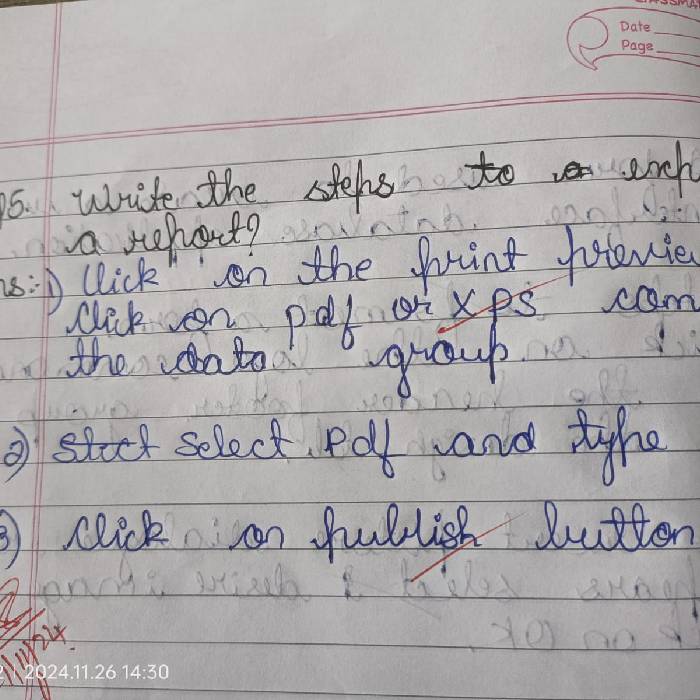 Date
Page
Q5. Write the steps to exp
a report?
ns:-1) Click on the print previe
Click on pdf or xps com
the data group.
2) select pdf and type
3) Click on publish button
2024.11.26 14:30